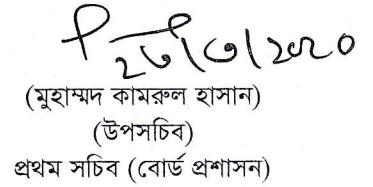 ২৬/৩/২০২০
(মুহাম্মদ কামরুল হাসান)
(উপসচিব)
প্রথম সচিব (বোর্ড প্রশাসন)